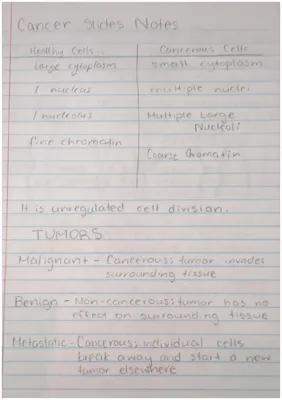 Cancer Slides Notes
Healthy Cells Cancerous Cells
Large cytoplasm small cytoplasm
1 nucleus multiple nuclei
1 nucleolus Multiple Large
Nucleoli
fine chromatin
Coarse Chromatin
It is unregulated cell division.
TUMORS
Malignant - Cancerous: tumor invades
surrounding tissue
Benign - Non-cancerous: tumor has no
effect on surrounding tissue
Metastatic - Cancerous: individual cells
break away and start a new
tumor elsewhere